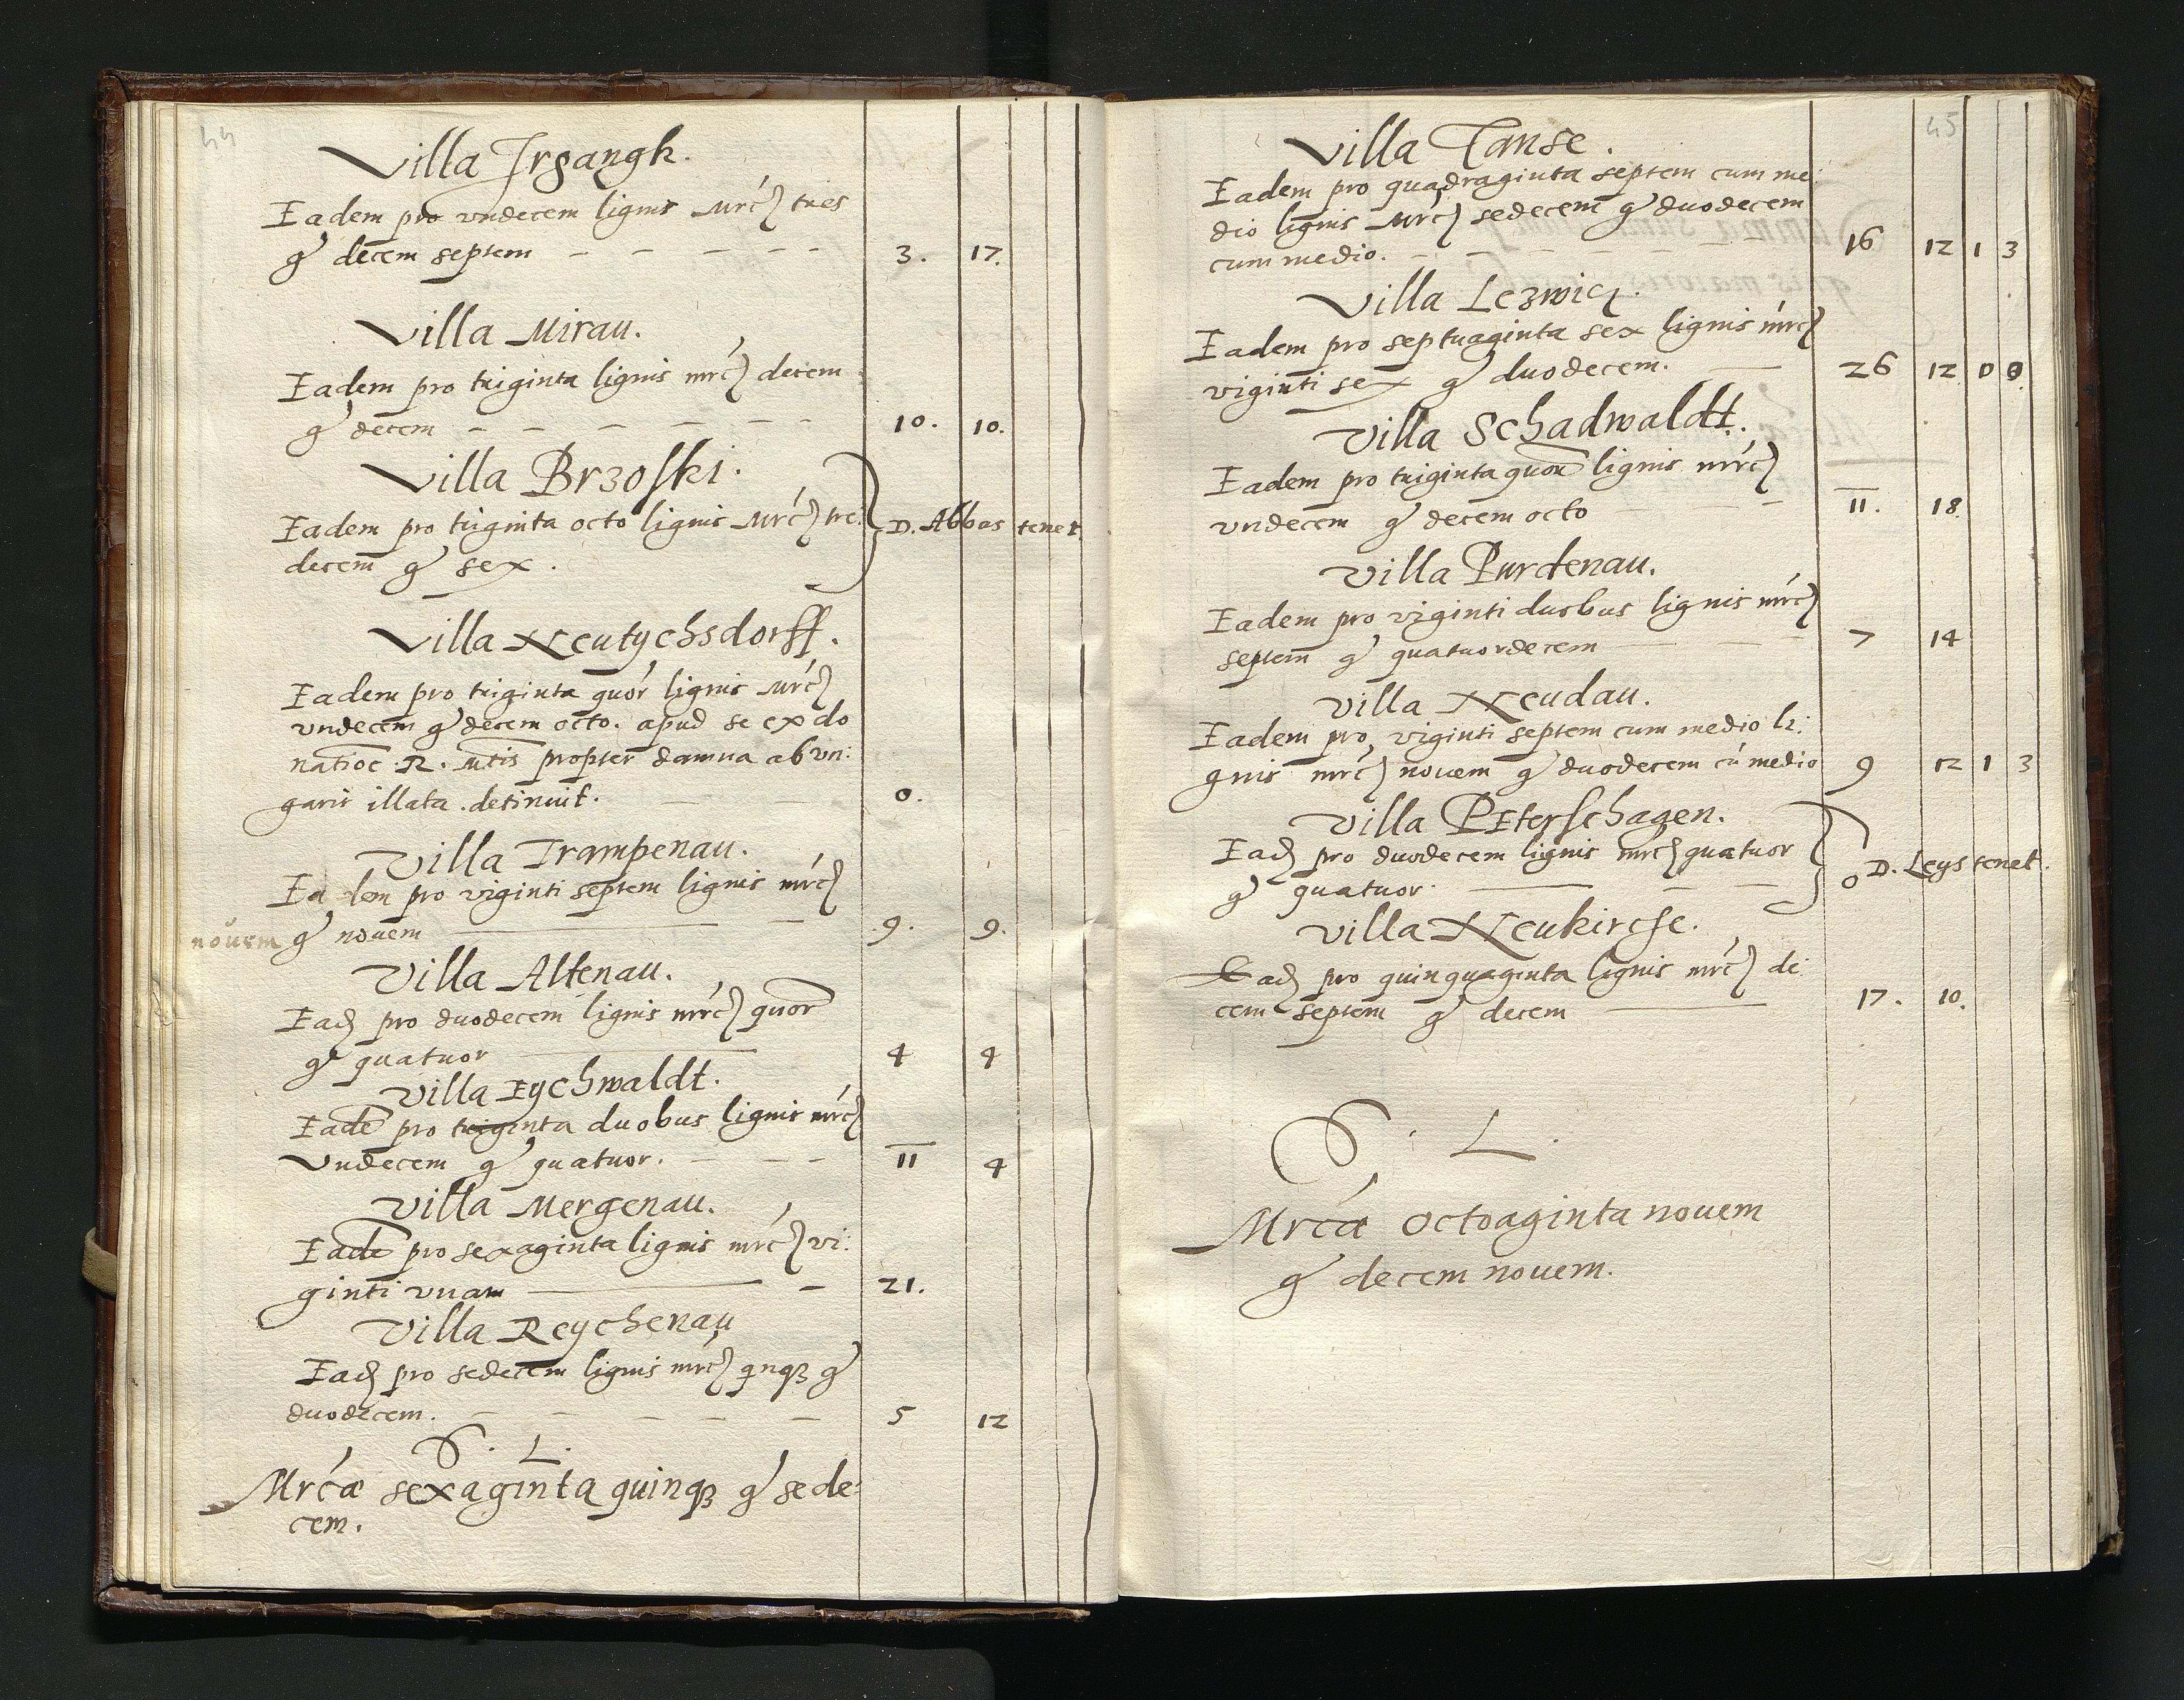 44
Villa Irgangk.
Eadem pro vndecem lignis Mrc tres
g decem septem — — — — 3. 17.
Villa Mirau.
Eadem pro triginta lignis mrc decem
g decem — — — — — — 10. 10.
Villa Brzoski.
Eadem pro triginta octo lignis Mrc tre: D. Abbas tenet
decem g sex.
Villa Neutychsdorff.
Eadem pro triginta quor lignis Mrc
vndecem g decem octo. apud se ex do
natioe R. Mtis propter damna ab vn:
garis illata. detinuit. 0.
Villa Trampenau.
Eadem pro viginti septem lignis mrc
nouem g nouem 9. 9.
Villa Altenau.
Ead pro duodecem lignis mrc quor
g quatuor 4 4
Villa Eychwaldt.
Eade pro triginta duobus lignis mrc
Vndecem g quatuor. — — — 11 4
Villa Mergenau.
Eade pro sexaginta lignis mrc vi:
ginti vnam — 21.
Villa Reychenau
Ead pro sedecem lignis mrc qnqз g
duodecem. — — — — — 5 12
S. L.
Mrcæ sexaginta quinqз g sede:
cem.
45
Villa Tanse.
Eadem pro quadraginta septem cum me:
dio lignis Mrc sedecem g duodecem
cum medio. — — — 16 12 1 3
Villa Lezwicz.
Eadem pro septuaginta sex lignis mrc
viginti sex g duodecem. — 26 12 0 0
Villa Schadwaldt.
Eadem pro triginta quor lignis mrc
vndecem g decem octo 11. 18
Villa Purdenau.
Eadem pro viginti duobus lignis mrc
septem g quatuordecem 7 14
Villa Neudau.
Eadem pro viginti septem cum medio li:
gnis mrc nouem g duodecem cu medio 9 12 1 3
Villa PEterschagen.
Ead pro duodecem lignis mrc quatuor
g quatuor. 0 D. Leys tenet.
Villa Neukirche.
Ead pro quinquaginta lignis mrc de:
cem septem g decem 17. 10.
S. L.
Mrcæ octoaginta nouem
g decem nouem.